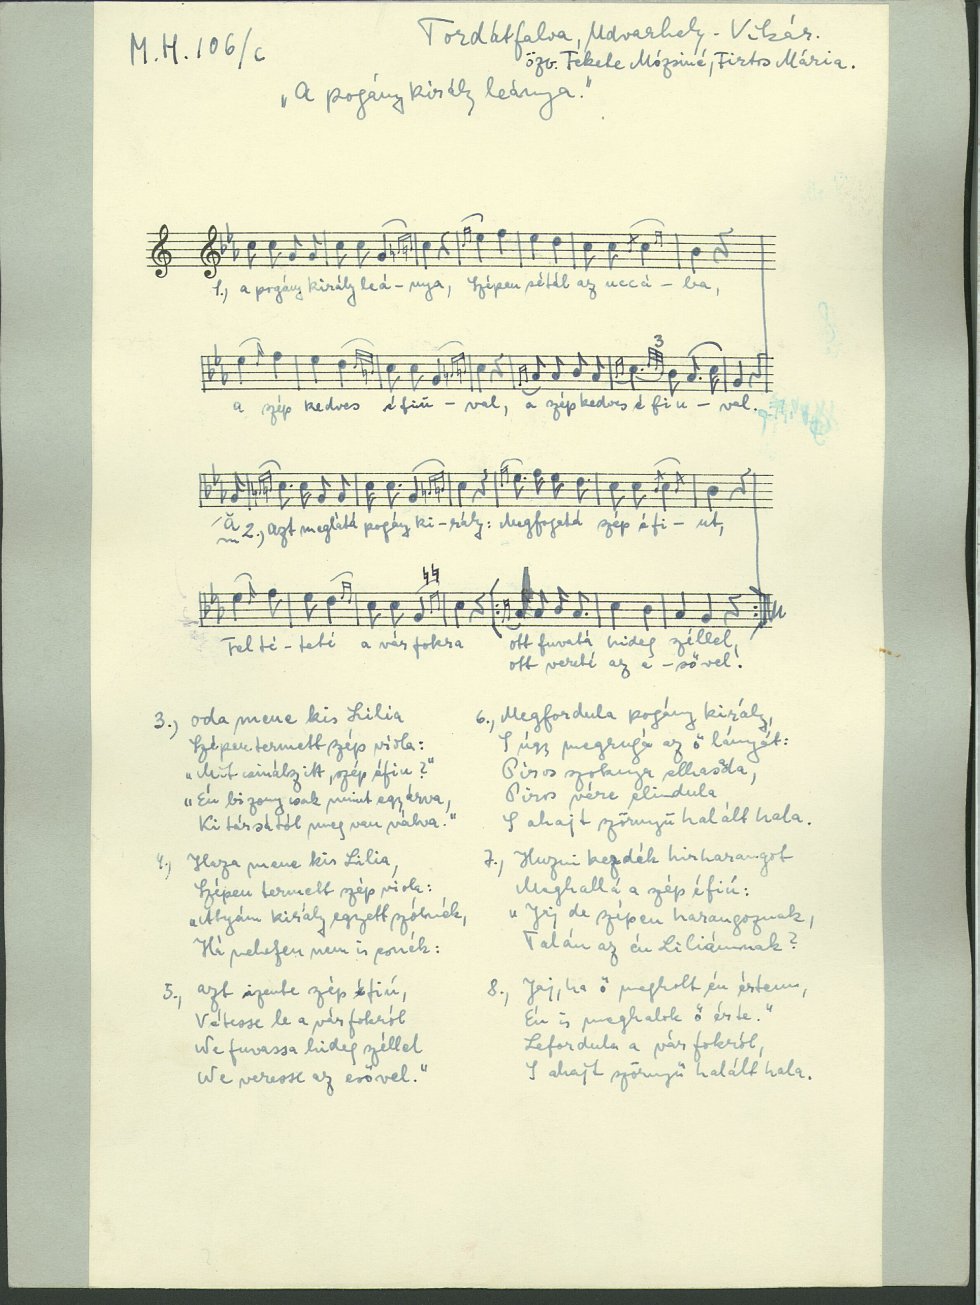 M.H. 106/c
Tordátfalva, Udvarhely - Vikár.
özv. Fekete Mózsiné, Firtos Mária.
„A pogány király leánya."
1., a pogány király leá - nya, szépen sétál az uccá - ba,
3
a szép kedves éfiú - val, a szép kedves éfiu - val.
2., Azt meglátá pogány ki - rály: Megfogatá szép éfi - ut,
Felté - teté a várfokra ott fuvatá hideg széllel,
ott vereté az e - sővel.
3., oda mene kis Lilia
Szépen termett szép viola:
„Mit csinálsz itt, szép éfiu?"
„Én bizony csak mint egy árva,
Ki társától meg van válva."
4., Haza mene kis Lilia,
Szépen termett szép viola:
„Atyám király egyett szólnék,
Ha nehefen nem is esnék:
5., azt izente szép éfiú,
Vétesse le a várfokról
We fuvassa hideg széllel
We veresse az esővel."
6., Megfordula pogány király,
S úgy megrugá az ő lányát:
Piros szoknya elhasada,
Piros vére elindula
S ahajt szörnyű halált hala.
7., Huzni kezdék hirharangot
Meghallá a szép éfiú:
„Jaj de szépen harangoznak,
Talán az én Liliámnak?
8., Jaj, ha ő megholt én értem,
Én is meghalok ő érte."
Lefordula a várfokról,
S ahajt szörnyű halált hala.